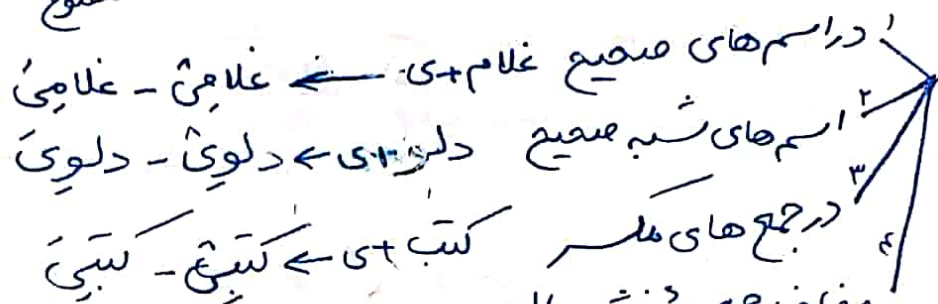 ۱ در اسم های صحیح غلام + ی ← غلامِیْ - غلامِیَ
۲ اسم های شبه صحیح دلو + ی ← دلوِیْ - دلوِیَ
۳ در جمع های مکسر کتب + ی ← کتبِیْ - کتبِیَ
۴